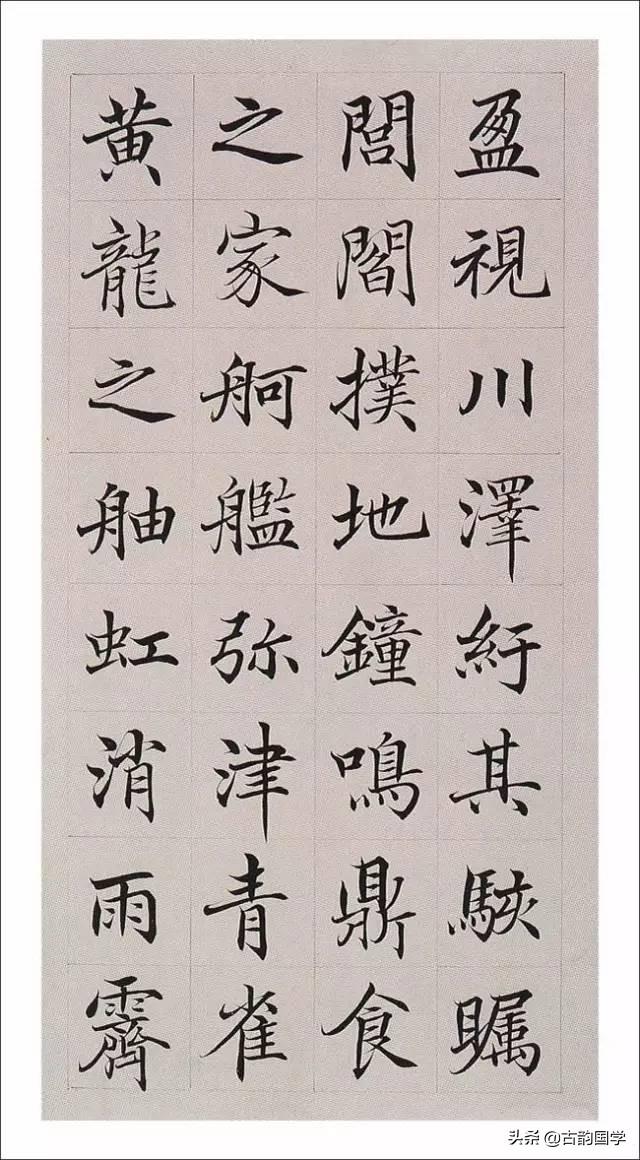 盈視川澤紆其駭矚
閭閻撲地鐘鳴鼎食
之家舸艦弥津青雀
黄龍之舳虹消雨霽
头条 @古韵国学